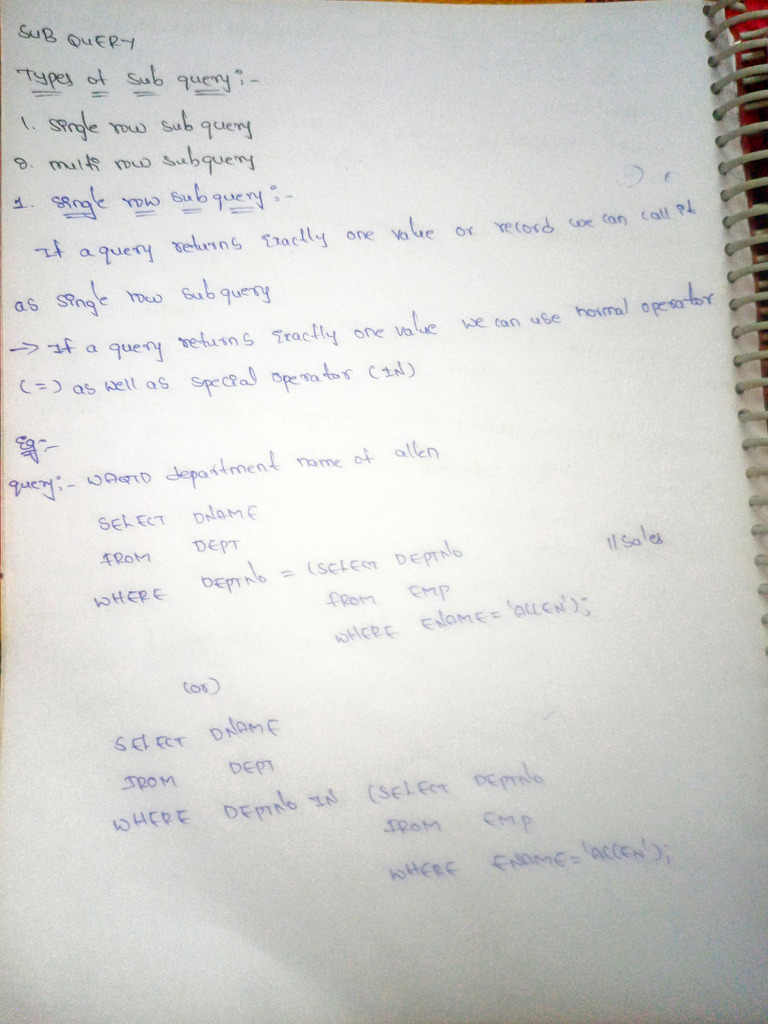 SUB QUERY
Types of Sub query:-
1. Single row sub query
2. multi row subquery
1. Single row subquery:-
If a query returns Exactly one value or record we can call it
as single row subquery
→ If a query returns Exactly one value we can use normal operator
(=) as well as special operator (IN)
Eg:-
query:- WAQTD department name of allen
SELECT DNAME
FROM DEPT
WHERE DEPTNO = (SELECT DEPTNO //Sales
FROM EMP
WHERE ENAME='ALLEN');
(or)
SELECT DNAME
FROM DEPT
WHERE DEPTNO IN (SELECT DEPTNO
FROM EMP
WHERE ENAME='ALLEN');